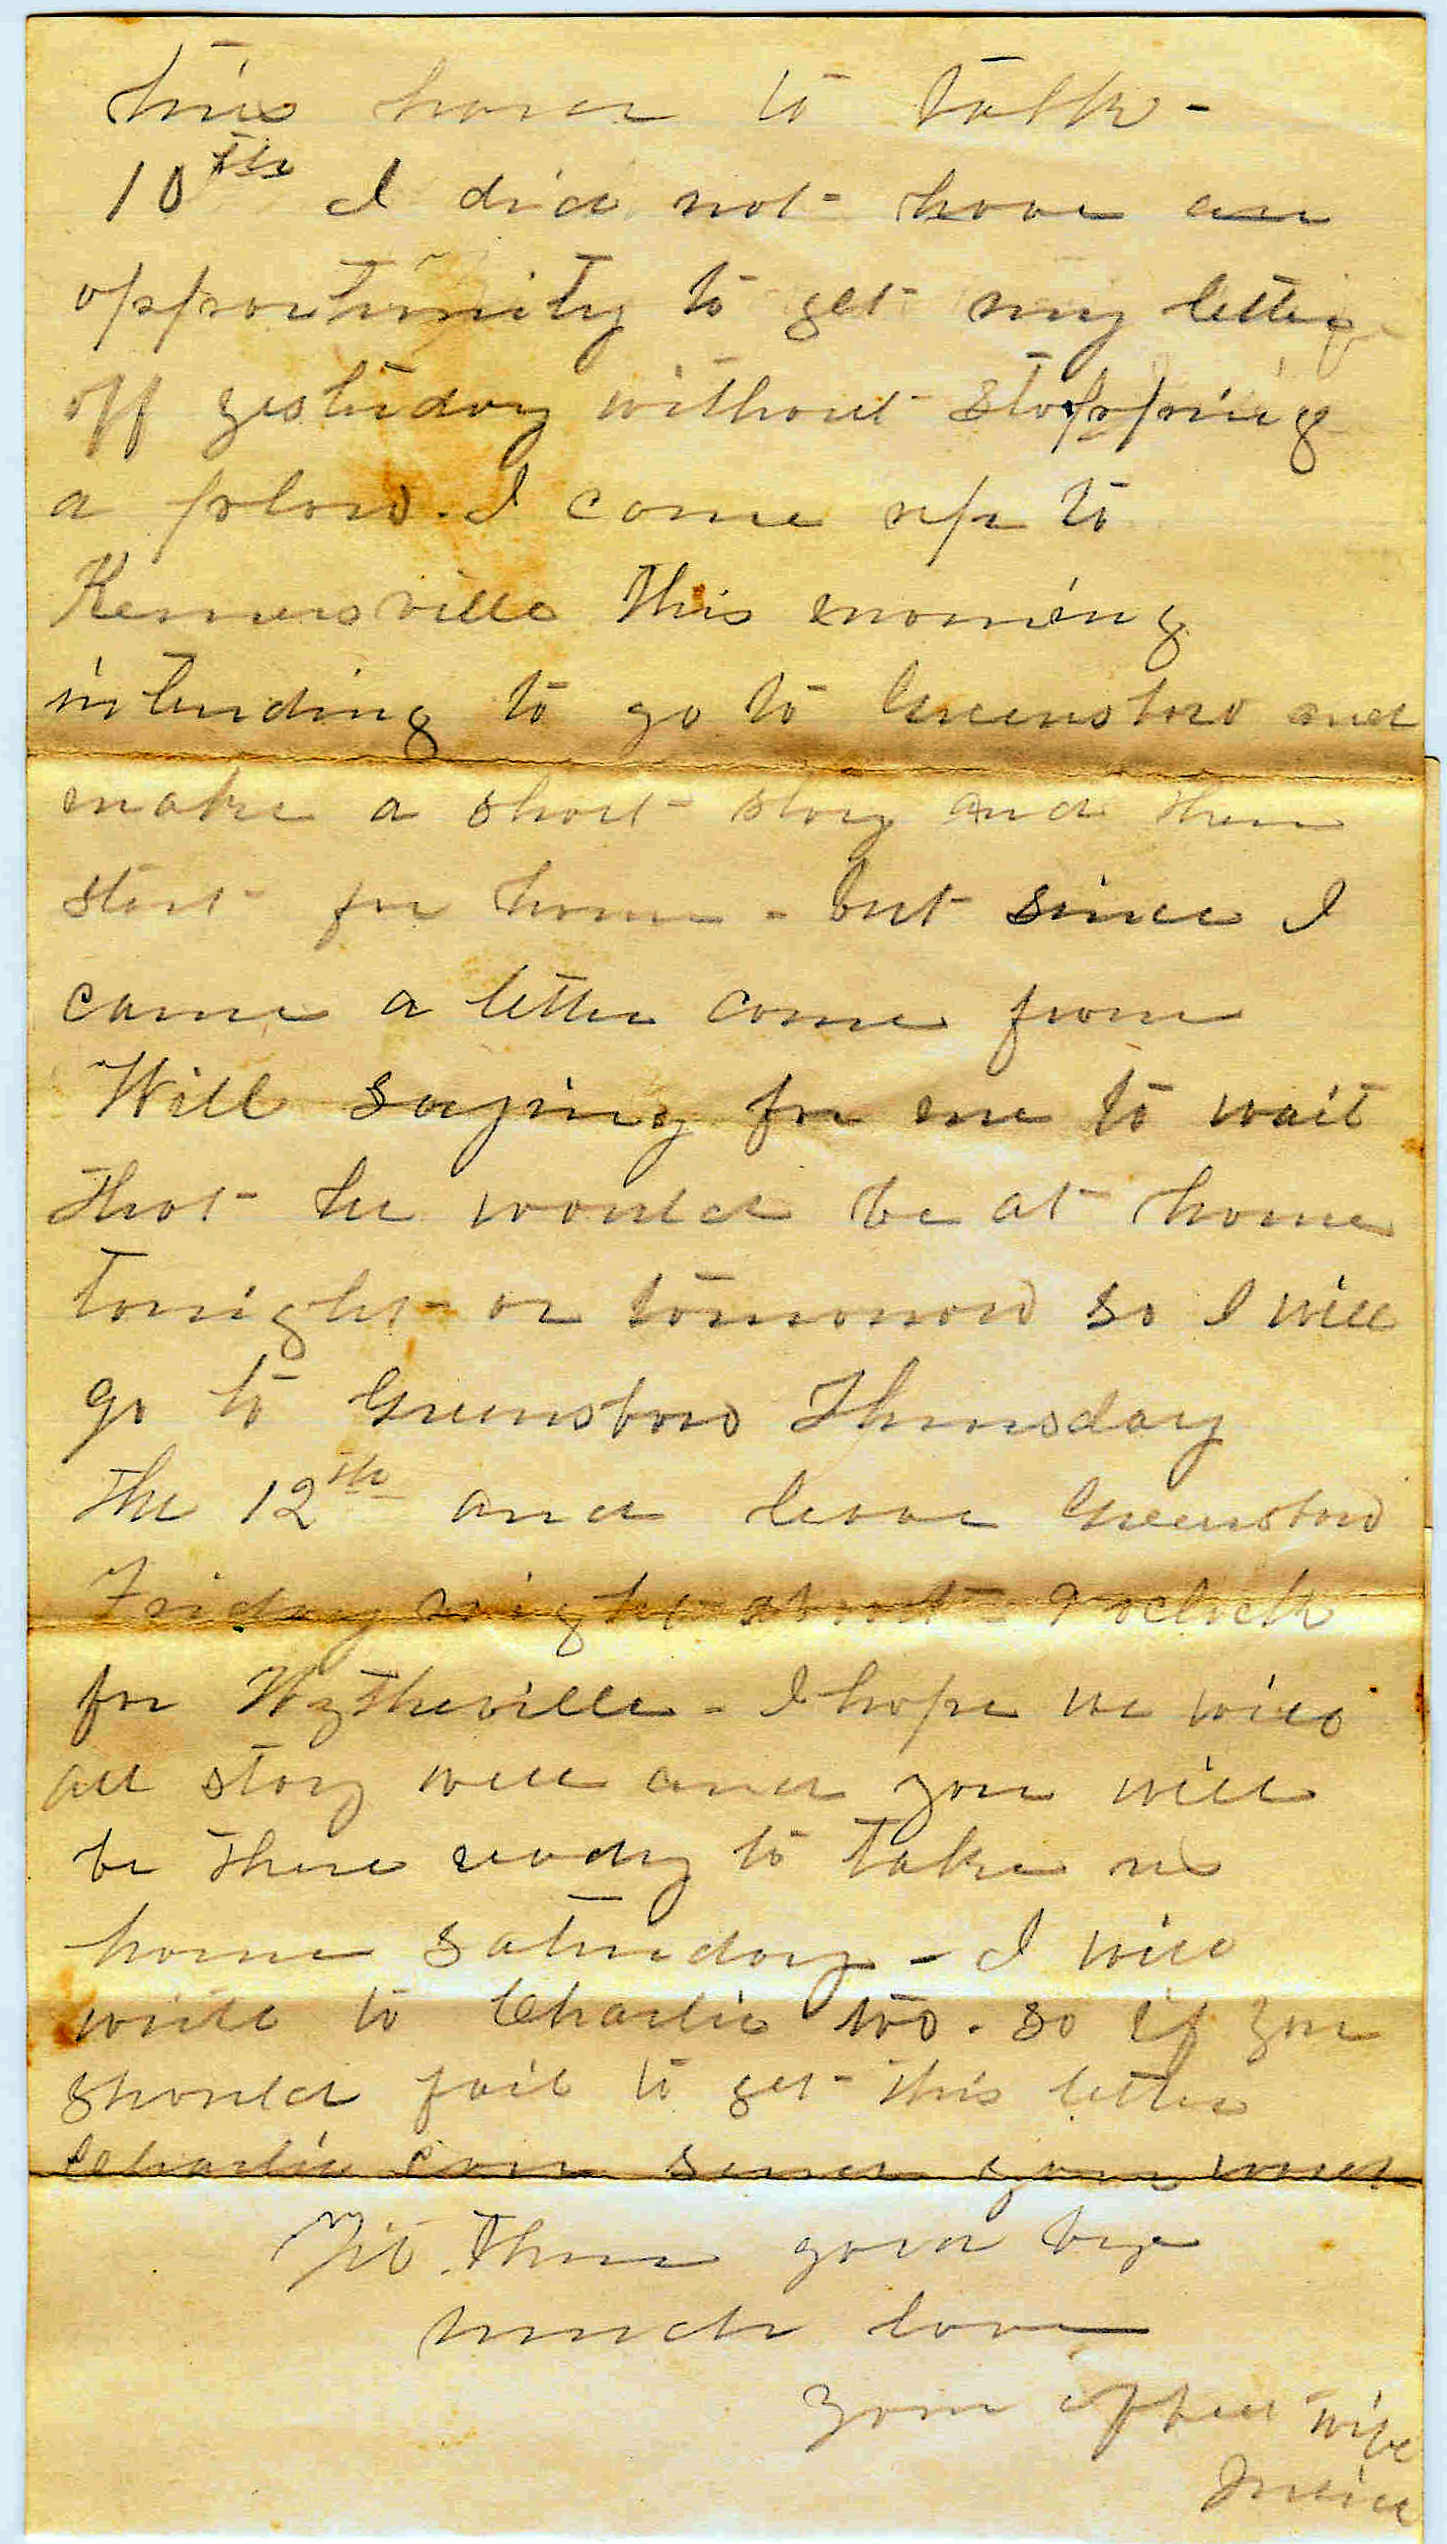 time have to talk -
10th I did not have an
opportunity to get my letter
off yesterday without stopping
a plow. I come up to
Kernersville this morning
intending to go to Greensboro and
make a short stay and then
start for home - but since I
came a letter come from
Will saying for me to wait
that he would be at home
tonight or tomorrow so I will
go to Greensboro Thursday
the 12th and leave Greensboro
Friday night about 9 oclock
for Wytheville - I hope we will
all stay well and you will
be there ready to take us
home Saturday - I will
write to Charlie too. so if you
should fail to get this letter
Charlie can send you word
then good bye
much love
your affect wife